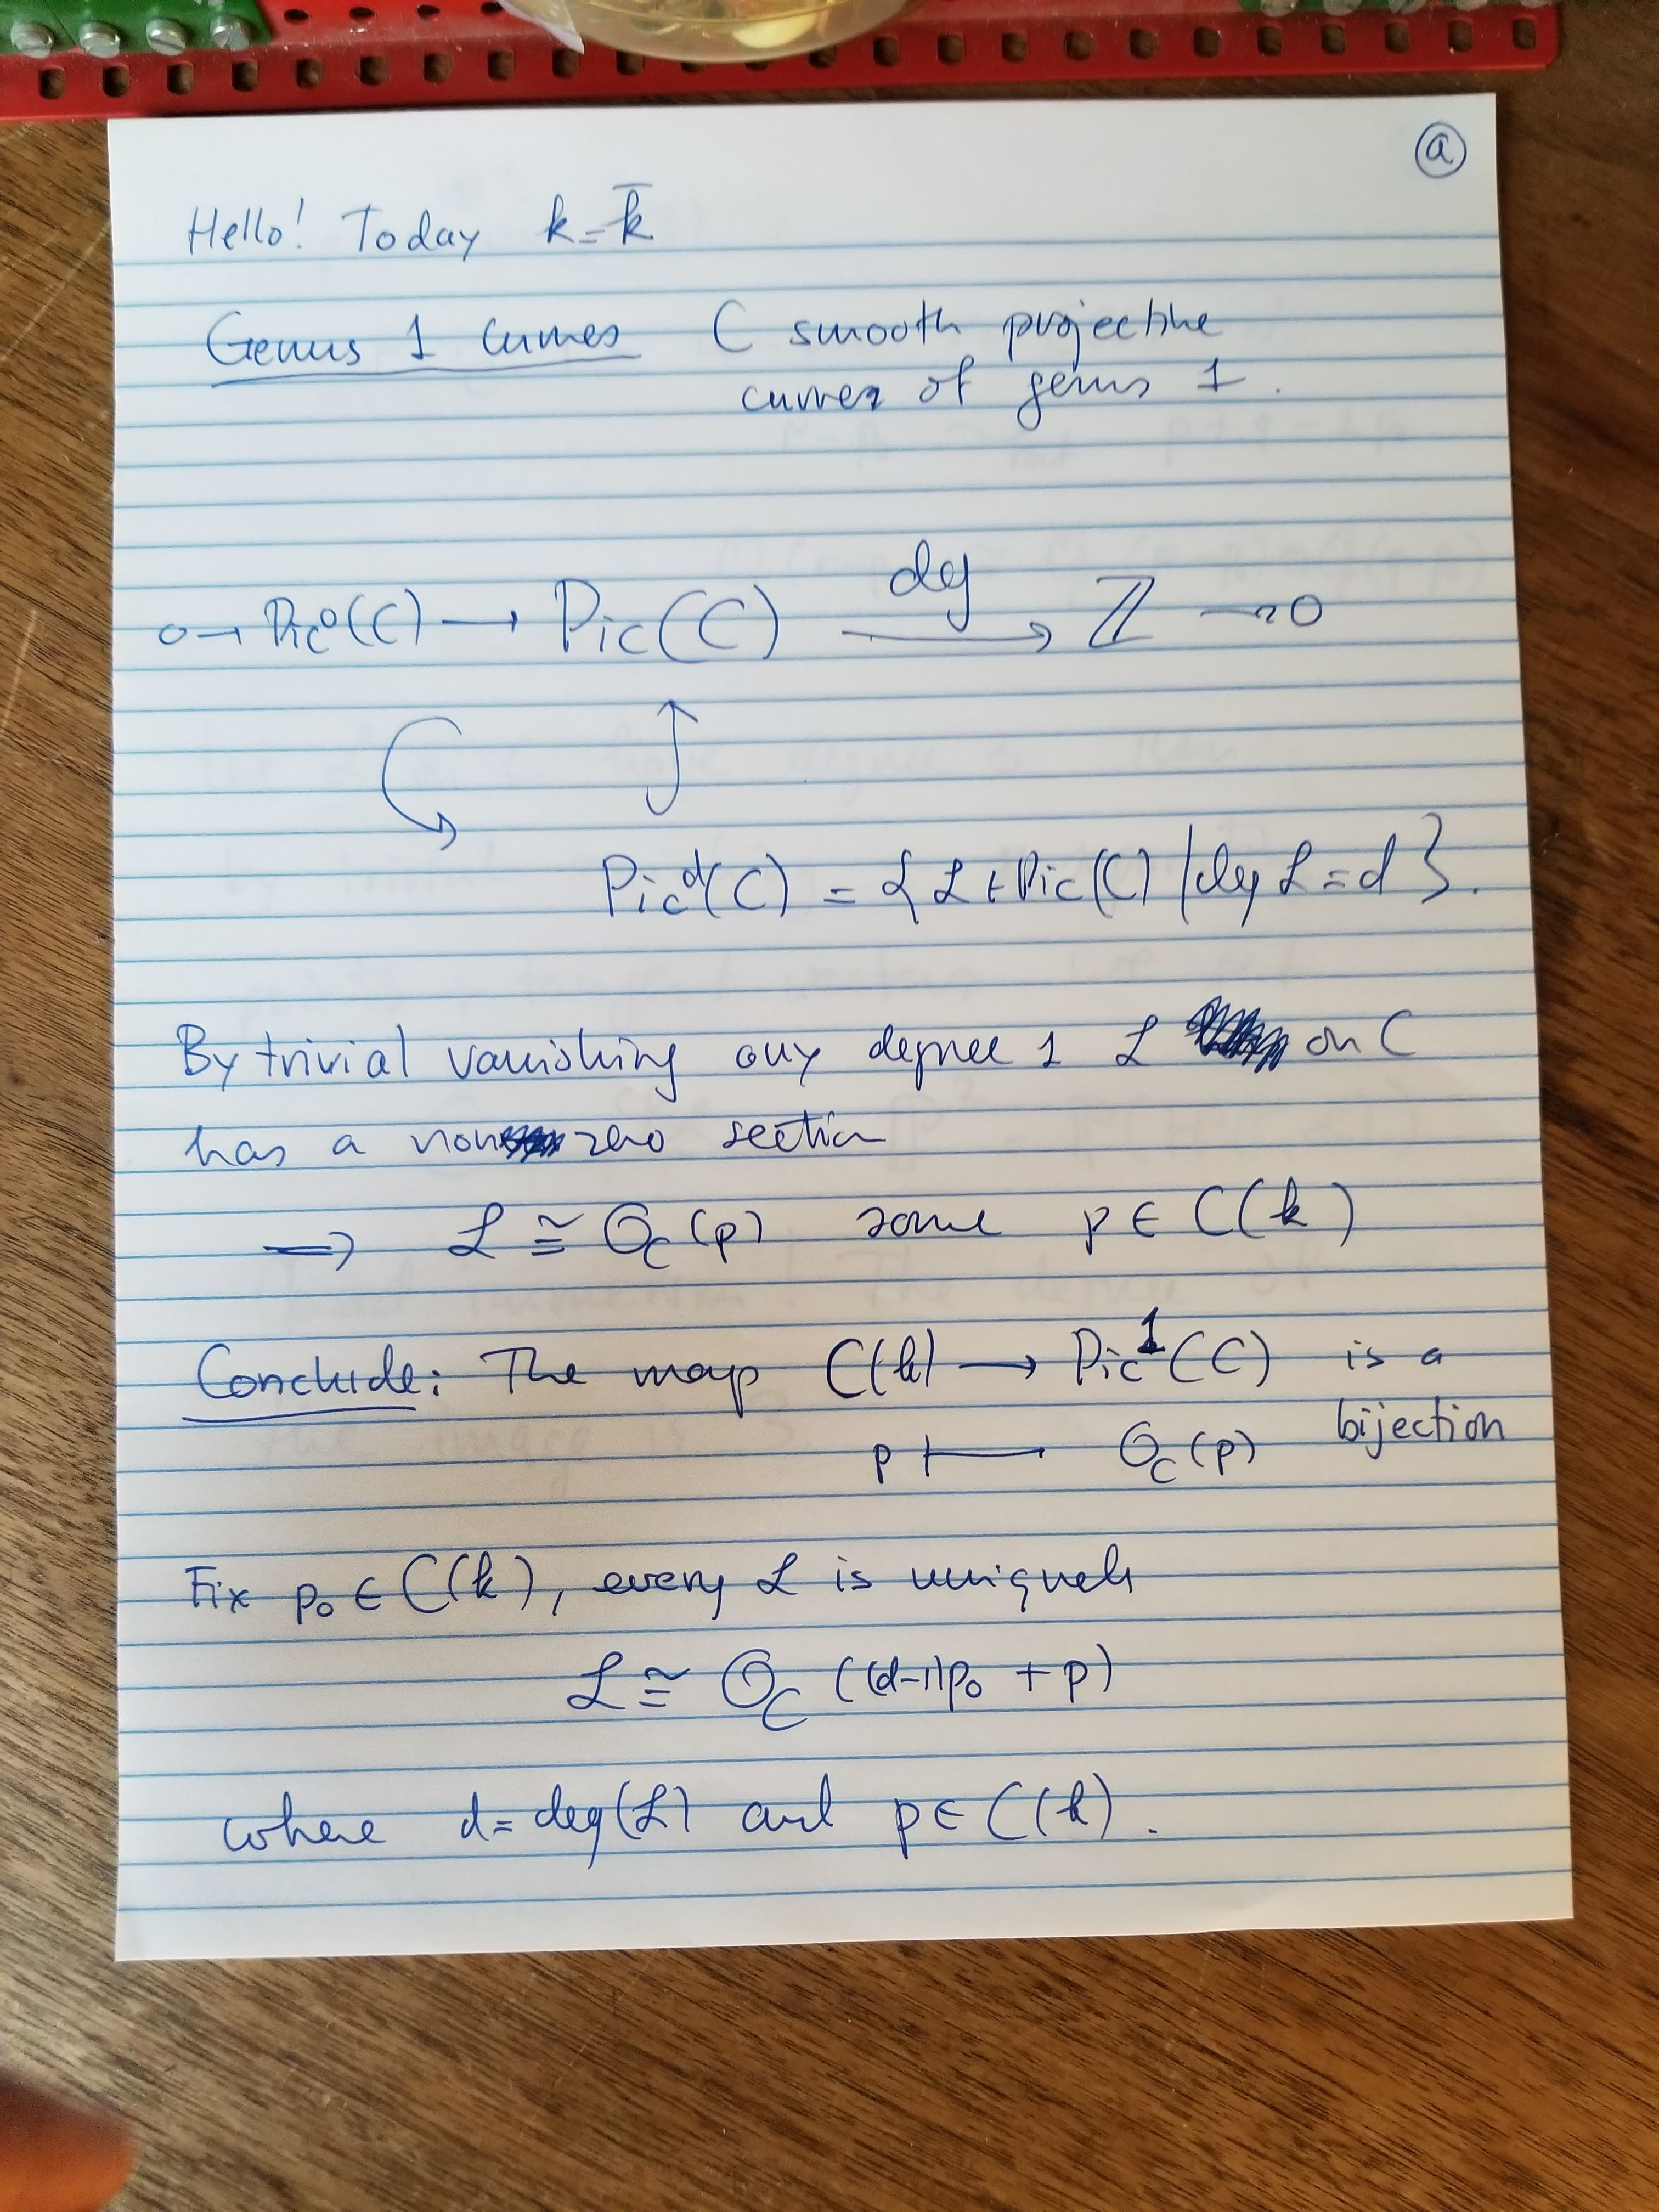 ⓐ
Hello! Today k = k̄
Genus 1 curves C smooth projective
curve of genus 1.
0 → Pic⁰(C) → Pic(C) →deg ℤ → 0
Picᵈ(C) = { ℒ ∈ Pic(C) | deg ℒ = d }.
By trivial vanishing any degree 1 ℒ on C
has a non zero section
⇒ ℒ ≅ 𝒪_C(p) some p ∈ C(k)
Conclude: The map C(k) → Pic¹(C) is a
bijection
p ⟼ 𝒪_C(p)
Fix p₀ ∈ C(k), every ℒ is uniquely
ℒ ≅ 𝒪_C((d-1)p₀ + p)
where d = deg(ℒ) and p ∈ C(k).